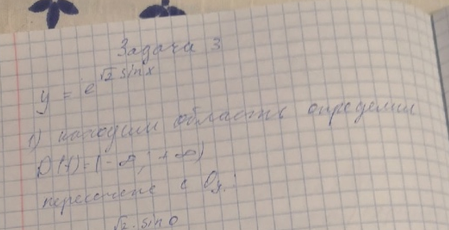 Задача 3
y = e^{√2 sin x}
1) находим область определии
D(f)=(-∞; +∞)
пересечение с Oy:
√2 · sin 0